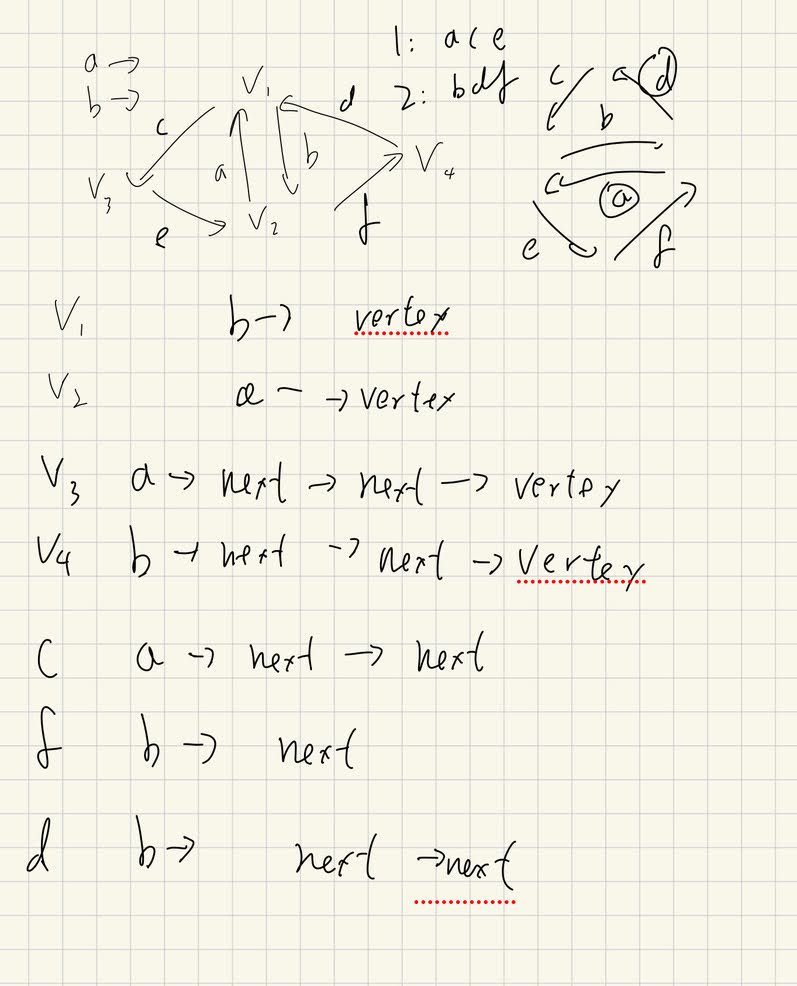 1: ace
a →
b →
2: bdf
V1
c
d
a
b
V3
V2
V4
e
f
c
d
b
a
e
f
V1 b → vertex
V2 a — → vertex
V3 a → next → next → vertex
V4 b → next → next → vertex
c a → next → next
f b → next
d b → next → next